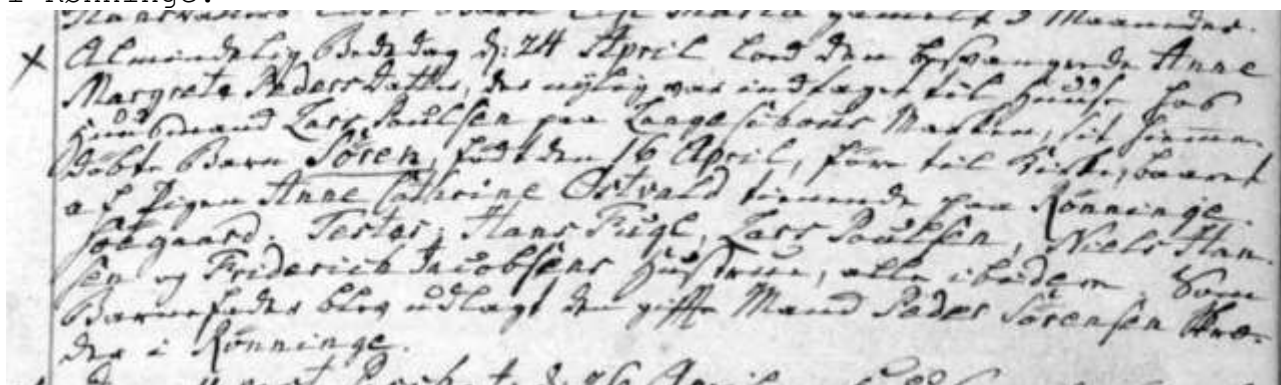 i Rønninge.
gamelt 3 Maaneder.
x Almindelig Bededag d: 24 April lod den besvangrede Anne
Margrete Pedersdatter, der nylig var indtaget til Huuse hos
Huusmand Lars Poulsen paa Langeskovs Marken, sit hiemme-
døbte Barn Sören, född den 16 April, føre til Kirke, baaret
af Pigen Anne Cathrine Ostvald tienende paa Rönninge
Søegaard. Testes: Hans Fugl, Lars Poulsen, Niels Han-
sen og Friderich Jacobsens Hustrue, alle ibidem. Som
Barnefader blev udlagt den gifte Mand Peder Sörensen
der i Rönninge.
d. 26 April